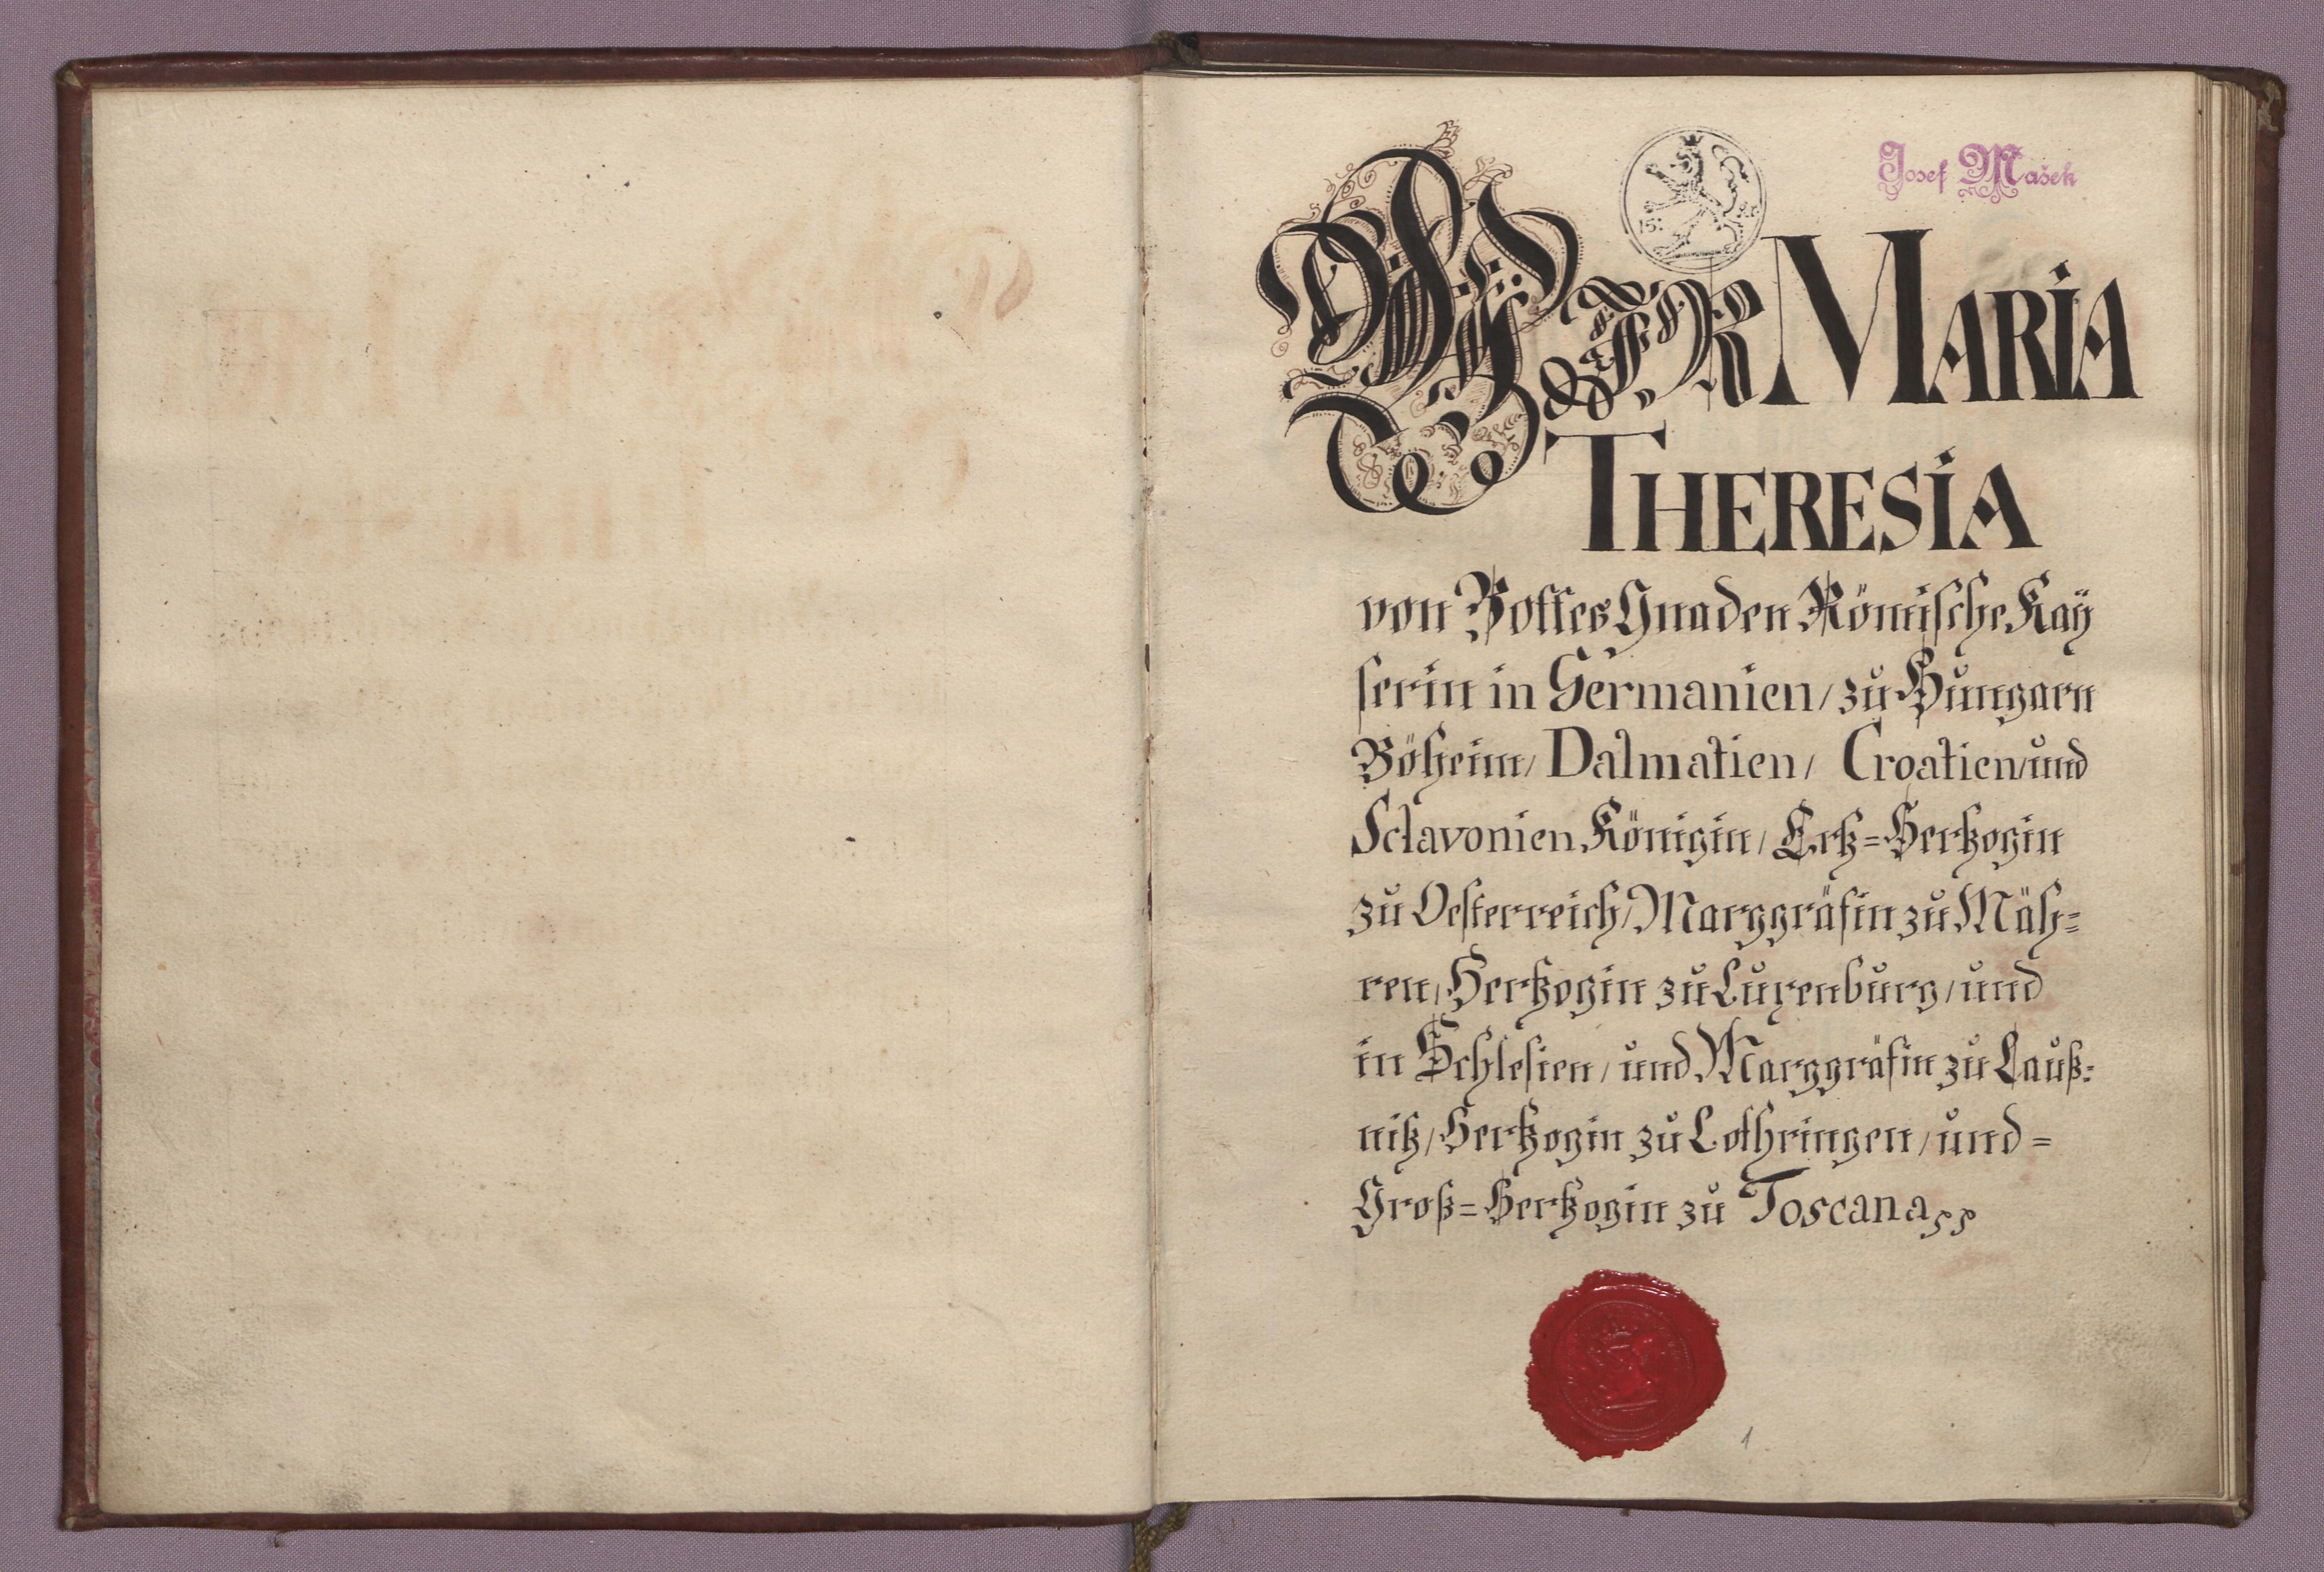 Josef Mašek
15: xr
WIR MARIA
THERESIA
von Gottes Gnaden Römische Kaÿ
serin in Germanien / zu Hungarn
Böheim / Dalmatien / Croatien / und
Sclavonien Königin / Ertz=Hertzogin
zu Oesterreich / Marggräfin zu Mäh=
ren / Hertzogin zu Luxenburg / und
in Schlesien / und Marggräfin zu Lauß=
nitz / Hertzogin zu Lothringen / und =
Groß=Hertzogin zu Toscana
1